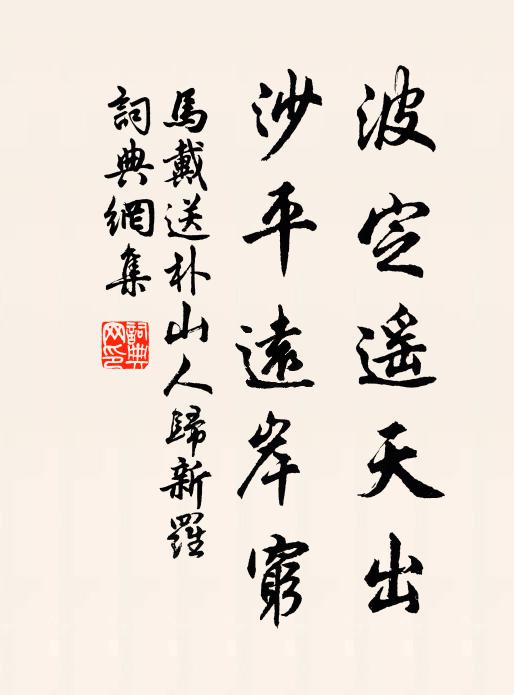 波定遥天出
沙平遠岸窮
馬戴送朴山人歸新羅
詞典網集
詞典网印